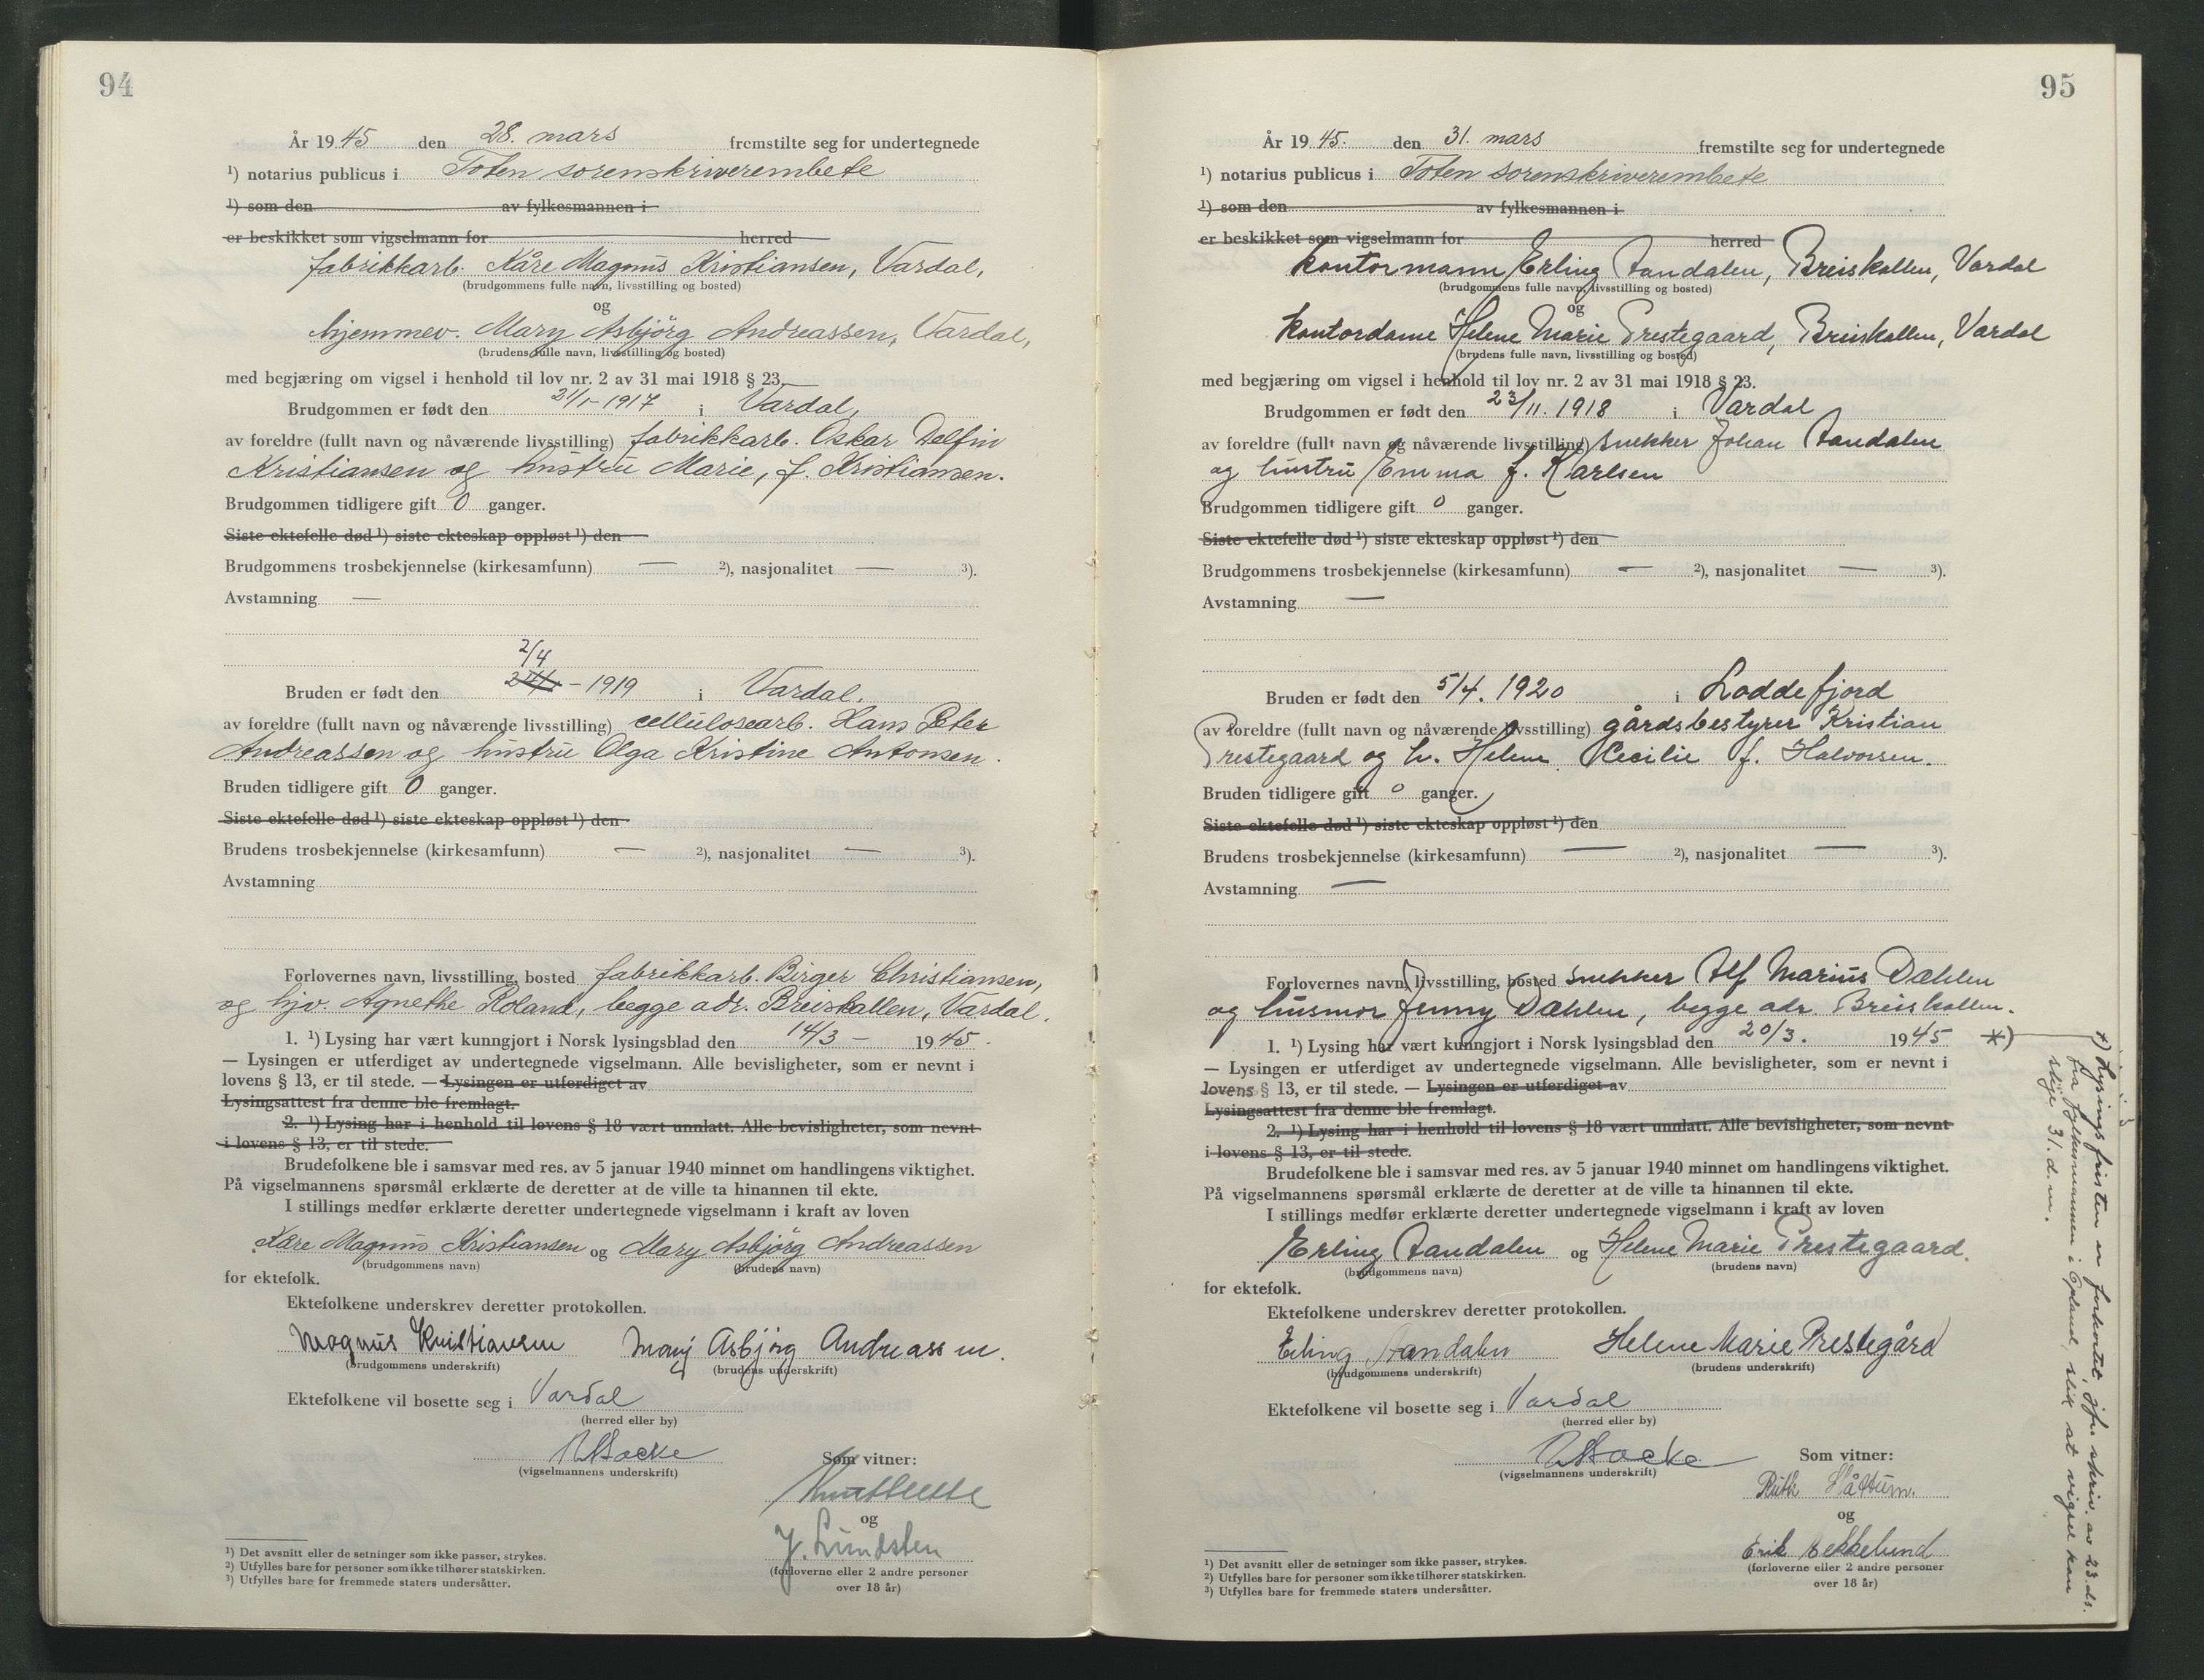 94
År 1945 den 28. mars fremstilte seg for undertegnede
¹) notarius publicus i Toten sorenskriverembete
¹) som den av fylkesmannen i
er beskikket som vigselmann for herred
fabrikkarb. Kåre Magnus Kristiansen, Vardal,
(brudgommens fulle navn, livsstilling og bosted)
og
hjemmev. Mary Asbjörg Andreassen, Vardal,
(brudens fulle navn, livsstilling og bosted)
med begjæring om vigsel i henhold til lov nr. 2 av 31 mai 1918 § 23.
Brudgommen er født den 21/1-1917 i Vardal,
av foreldre (fullt navn og nåværende livsstilling) fabrikkarb. Oskar Delfin
Kristiansen og hustru Marie, f. Kristiansen.
Brudgommen tidligere gift 0 ganger.
Siste ektefelle død ¹) siste ekteskap oppløst ¹) den
Brudgommens trosbekjennelse (kirkesamfunn) — ²), nasjonalitet — ³).
Avstamning —
2/4
Bruden er født den – 1919 i Vardal.
av foreldre (fullt navn og nåværende livsstilling) cellulosearb. Hans Peter
Andreassen og hustru Olga Kristine Antonsen.
Bruden tidligere gift 0 ganger.
Siste ektefelle død ¹) siste ekteskap oppløst ¹) den
Brudens trosbekjennelse (kirkesamfunn) — ²), nasjonalitet — ³).
Avstamning
Forlovernes navn, livsstilling, bosted fabrikkarb. Birger Christiansen,
og hjv. Agnethe Roland, begge adr. Breiskallen, Vardal.
1. ¹) Lysing har vært kunngjort i Norsk lysingsblad den 14/3 – 1945.
— Lysingen er utferdiget av undertegnede vigselmann. Alle bevisligheter, som er nevnt i
lovens § 13, er til stede. — Lysingen er utferdiget av
Lysingsattest fra denne ble fremlagt.
2. ¹) Lysing har i henhold til lovens § 18 vært unnlatt. Alle bevisligheter, som nevnt
i lovens § 13, er til stede.
Brudefolkene ble i samsvar med res. av 5 januar 1940 minnet om handlingens viktighet.
På vigselmannens spørsmål erklærte de deretter at de ville ta hinannen til ekte.
I stillings medfør erklærte deretter undertegnede vigselmann i kraft av loven
Kåre Magnus Kristiansen og Mary Asbjörg Andreassen
(brudgommens navn) (brudens navn)
for ektefolk.
Ektefolkene underskrev deretter protokollen.
Magnus Kristiansen Mary Asbjörg Andreassen.
(brudgommens underskrift) (brudens underskrift)
Ektefolkene vil bosette seg i Vardal
(herred eller by)
(vigselmannens underskrift) Som vitner:
og
J. Lundsten
(forloverne eller 2 andre personer
over 18 år)
¹) Det avsnitt eller de setninger som ikke passer, strykes.
²) Utfylles bare for personer som ikke tilhører statskirken.
³) Utfylles bare for fremmede staters undersåtter.
95
År 1945. den 31. mars fremstilte seg for undertegnede
¹) notarius publicus i Toten sorenskriverembete
¹) som den av fylkesmannen i
er beskikket som vigselmann for herred
kontormann Erling Aandalen, Breiskallen, Vardal
(brudgommens fulle navn, livsstilling og bosted)
og
kontordame Helene Marie Prestegaard, Breiskallen, Vardal
(brudens fulle navn, livsstilling og bosted)
med begjæring om vigsel i henhold til lov nr. 2 av 31 mai 1918 § 23.
Brudgommen er født den 23/11. 1918 i Vardal
av foreldre (fullt navn og nåværende livsstilling) snekker Johan Aandalen
og hustru Emma f. Karlsen
Brudgommen tidligere gift 0 ganger.
Siste ektefelle død ¹) siste ekteskap oppløst ¹) den
Brudgommens trosbekjennelse (kirkesamfunn) — ²), nasjonalitet — ³).
Avstamning —
Bruden er født den 5/4. 1920 i Loddefjord
av foreldre (fullt navn og nåværende livsstilling) gårdsbestyrer Kristian
Prestegaard og h. Helene Cecilie f. Halvorsen.
Bruden tidligere gift 0 ganger.
Siste ektefelle død ¹) siste ekteskap oppløst ¹) den
Brudens trosbekjennelse (kirkesamfunn) — ²), nasjonalitet — ³).
Avstamning —
Forlovernes navn, livsstilling, bosted snekker Alf Marius Dæhlen
og husmor Jenny Dæhlen, begge adr. Breiskallen.
1. ¹) Lysing har vært kunngjort i Norsk lysingsblad den 20/3. 1945 *)
— Lysingen er utferdiget av undertegnede vigselmann. Alle bevisligheter, som er nevnt i
lovens § 13, er til stede. — Lysingen er utferdiget av
Lysingsattest fra denne ble fremlagt.
2. ¹) Lysing har i henhold til lovens § 18 vært unnlatt. Alle bevisligheter, som nevnt
i lovens § 13, er til stede.
Brudefolkene ble i samsvar med res. av 5 januar 1940 minnet om handlingens viktighet.
På vigselmannens spørsmål erklærte de deretter at de ville ta hinannen til ekte.
I stillings medfør erklærte deretter undertegnede vigselmann i kraft av loven
Erling Aandalen og Helene Marie Prestegaard.
(brudgommens navn) (brudens navn)
for ektefolk.
Ektefolkene underskrev deretter protokollen.
Erling Aandalen Helene Marie Prestegård
(brudgommens underskrift) (brudens underskrift)
Ektefolkene vil bosette seg i Vardal
(herred eller by)
(vigselmannens underskrift) Som vitner:
Ruth Slåttum.
og
Erik Bekkelund
(forloverne eller 2 andre personer
over 18 år)
¹) Det avsnitt eller de setninger som ikke passer, strykes.
²) Utfylles bare for personer som ikke tilhører statskirken.
³) Utfylles bare for fremmede staters undersåtter.
*) Lysingsfristen er forkortet, jfr. skriv. av 23. ds.
fra fylkesmannen i Opland, slik at vigsel kan
skje 31. d.m.